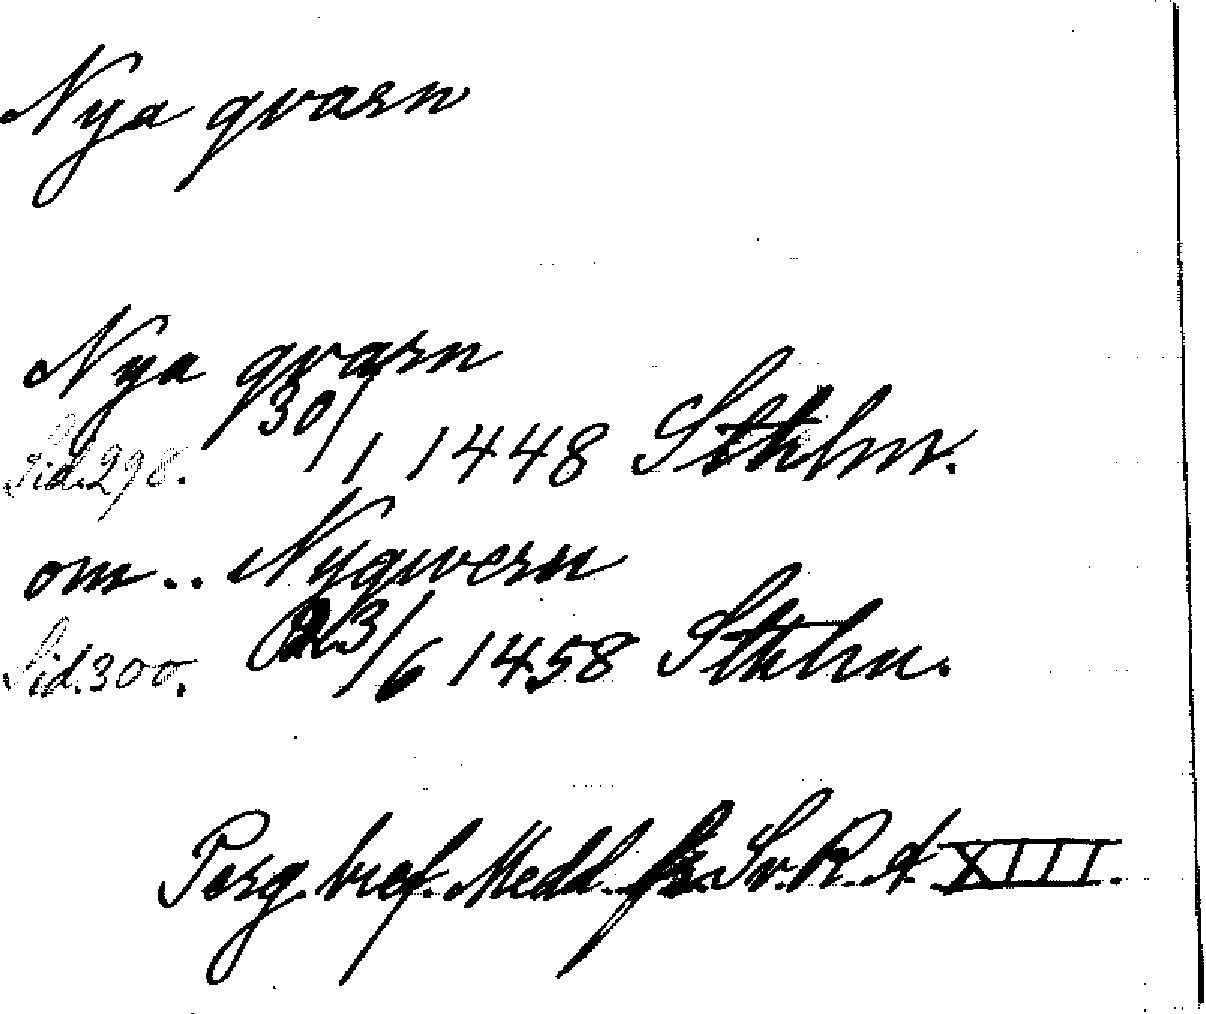 Nya qvarn
Nya qvarn
Sid. 298. 30/1 1448 Sthlm.
om .. Nyqwern
Sid. 300. 23/6 1458 Sthlm.
Perg. bref. Medd. fr. Sv. R. A XIII.